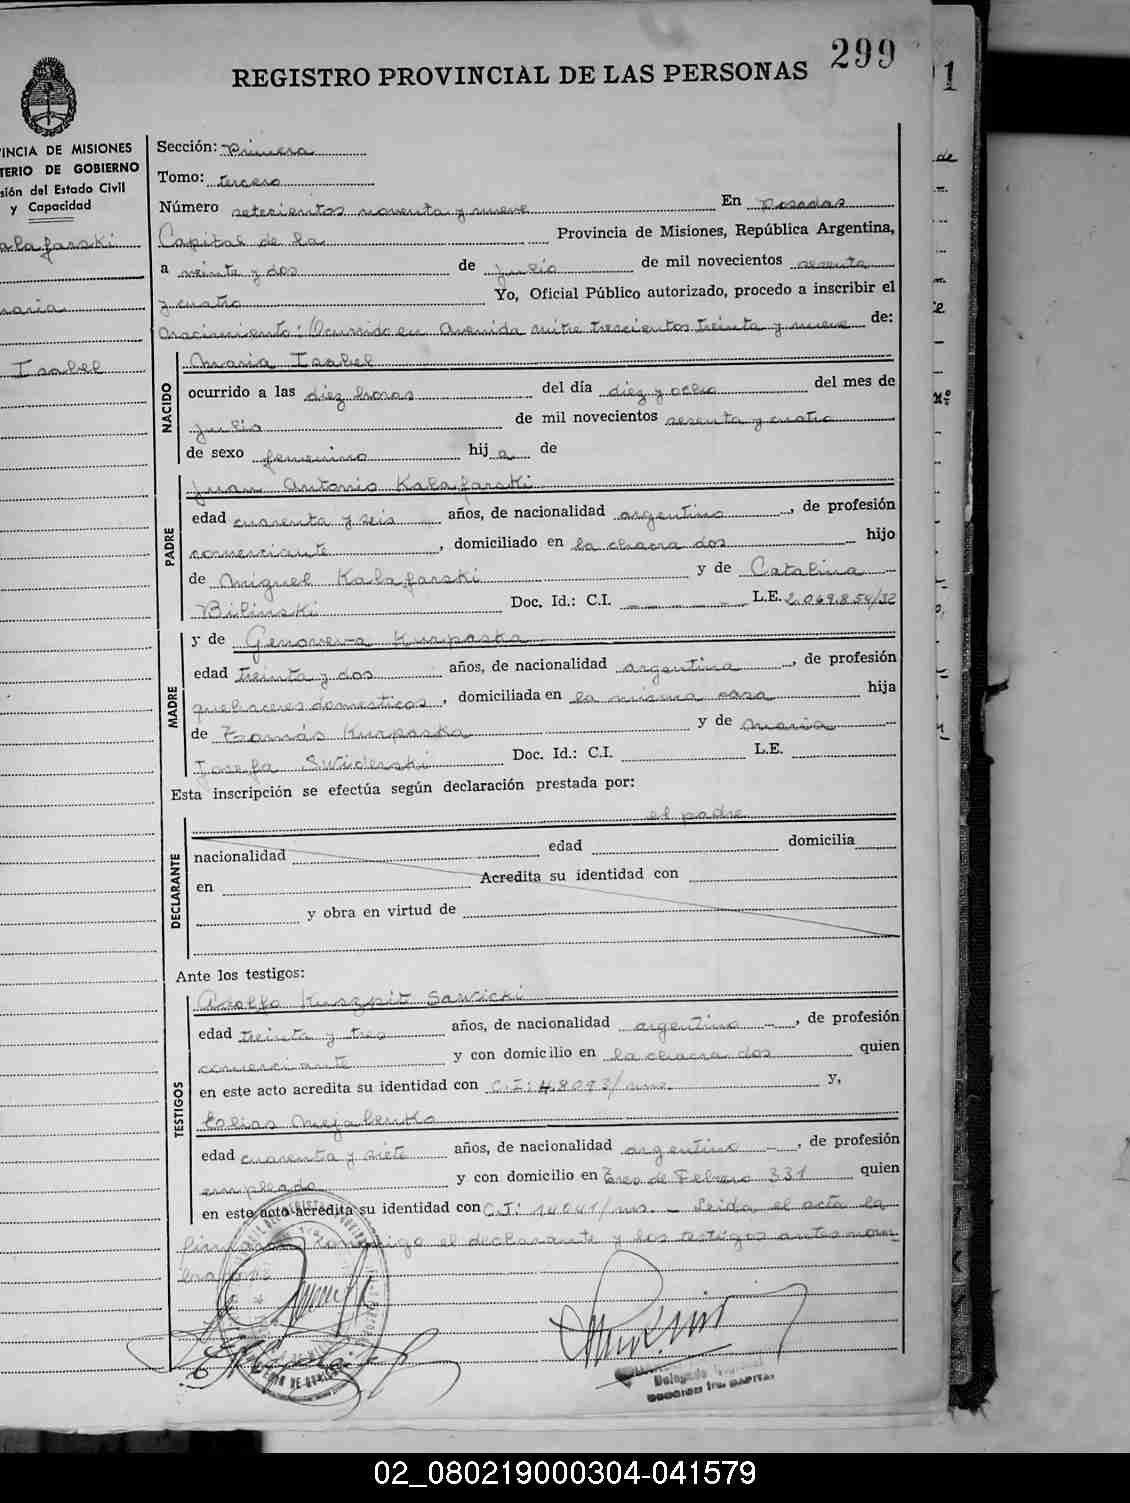 299
REGISTRO PROVINCIAL DE LAS PERSONAS
1
INCIA DE MISIONES
TERIO DE GOBIERNO
sión del Estado Civil
y Capacidad
alafarski
maria
Isabel
Sección: Primera
Tomo: tercero
Número setecientos noventa y nueve En Posadas
Capital de la Provincia de Misiones, República Argentina,
a veinte y dos de julio de mil novecientos sesenta
y cuatro Yo, Oficial Público autorizado, procedo a inscribir el
nacimiento: Ocurrido en Avenida mitre trescientos treinta y nueve de:
NACIDO
Maria Isabel
ocurrido a las diez horas del día diez y ocho del mes de
julio de mil novecientos sesenta y cuatro
de sexo femenino hij a de
PADRE
Juan Antonio Kalafarski
edad cuarenta y seis años, de nacionalidad argentino, de profesión
comerciante, domiciliado en la chacra dos hijo
de Miguel Kalafarski y de Catalina
Bilinski Doc. Id.: C.I. L.E. 2.069.854/32
MADRE
y de Genoveva Kurpaska
edad treinta y dos años, de nacionalidad argentina, de profesión
quehaceres domesticos, domiciliada en la misma casa hija
de Tomás Kurpaska y de Maria
Josefa Swiderski Doc. Id.: C.I. L.E.
Esta inscripción se efectúa según declaración prestada por:
el padre
DECLARANTE
nacionalidad edad domicilia
en Acredita su identidad con
y obra en virtud de
Ante los testigos:
TESTIGOS
Adolfo Kuszpit Sawicki
edad treinta y tres años, de nacionalidad argentino, de profesión
comerciante y con domicilio en la chacra dos quien
en este acto acredita su identidad con C.I: 48093/mns. y,
Elias Mejalenko
edad cuarenta y siete años, de nacionalidad argentino, de profesión
empleado y con domicilio en Tres de Febrero 331 quien
en este acto acredita su identidad con C.I: 14041/ms. - Leida el acta la
firman conmigo el declarante y los testigos antes nom
brados
Delegado
SECCION 1ra. CAPITAL
02_080219000304-041579